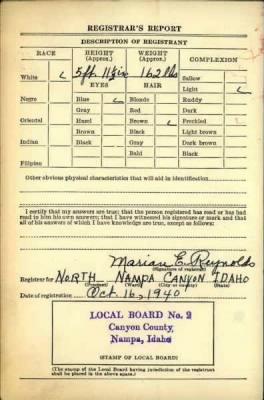 REGISTRAR'S REPORT
DESCRIPTION OF REGISTRANT
RACE HEIGHT (Approx.) WEIGHT (Approx.) COMPLEXION
White 5 ft. 11½ in 162 lbs Sallow
EYES HAIR Light
Negro Blue Blonde Ruddy
Gray Red Dark
Oriental Hazel Brown Freckled
Brown Black Light brown
Indian Black Gray Dark brown
Bald Black
Filipino
Other obvious physical characteristics that will aid in identification
I certify that my answers are true; that the person registered has read or has had
read to him his own answers; that I have witnessed his signature or mark and that
all of his answers of which I have knowledge are true, except as follows:
Marian E. Reynolds
(Signature of registrar)
Registrar for NORTH NAMPA CANYON IDAHO
(Precinct) (Ward) (City or county) (State)
Date of registration Oct. 16, 1940
LOCAL BOARD No. 2
Canyon County,
Nampa, Idaho
(STAMP OF LOCAL BOARD)
(The stamp of the Local Board having jurisdiction of the registrant
shall be placed in the above space.)